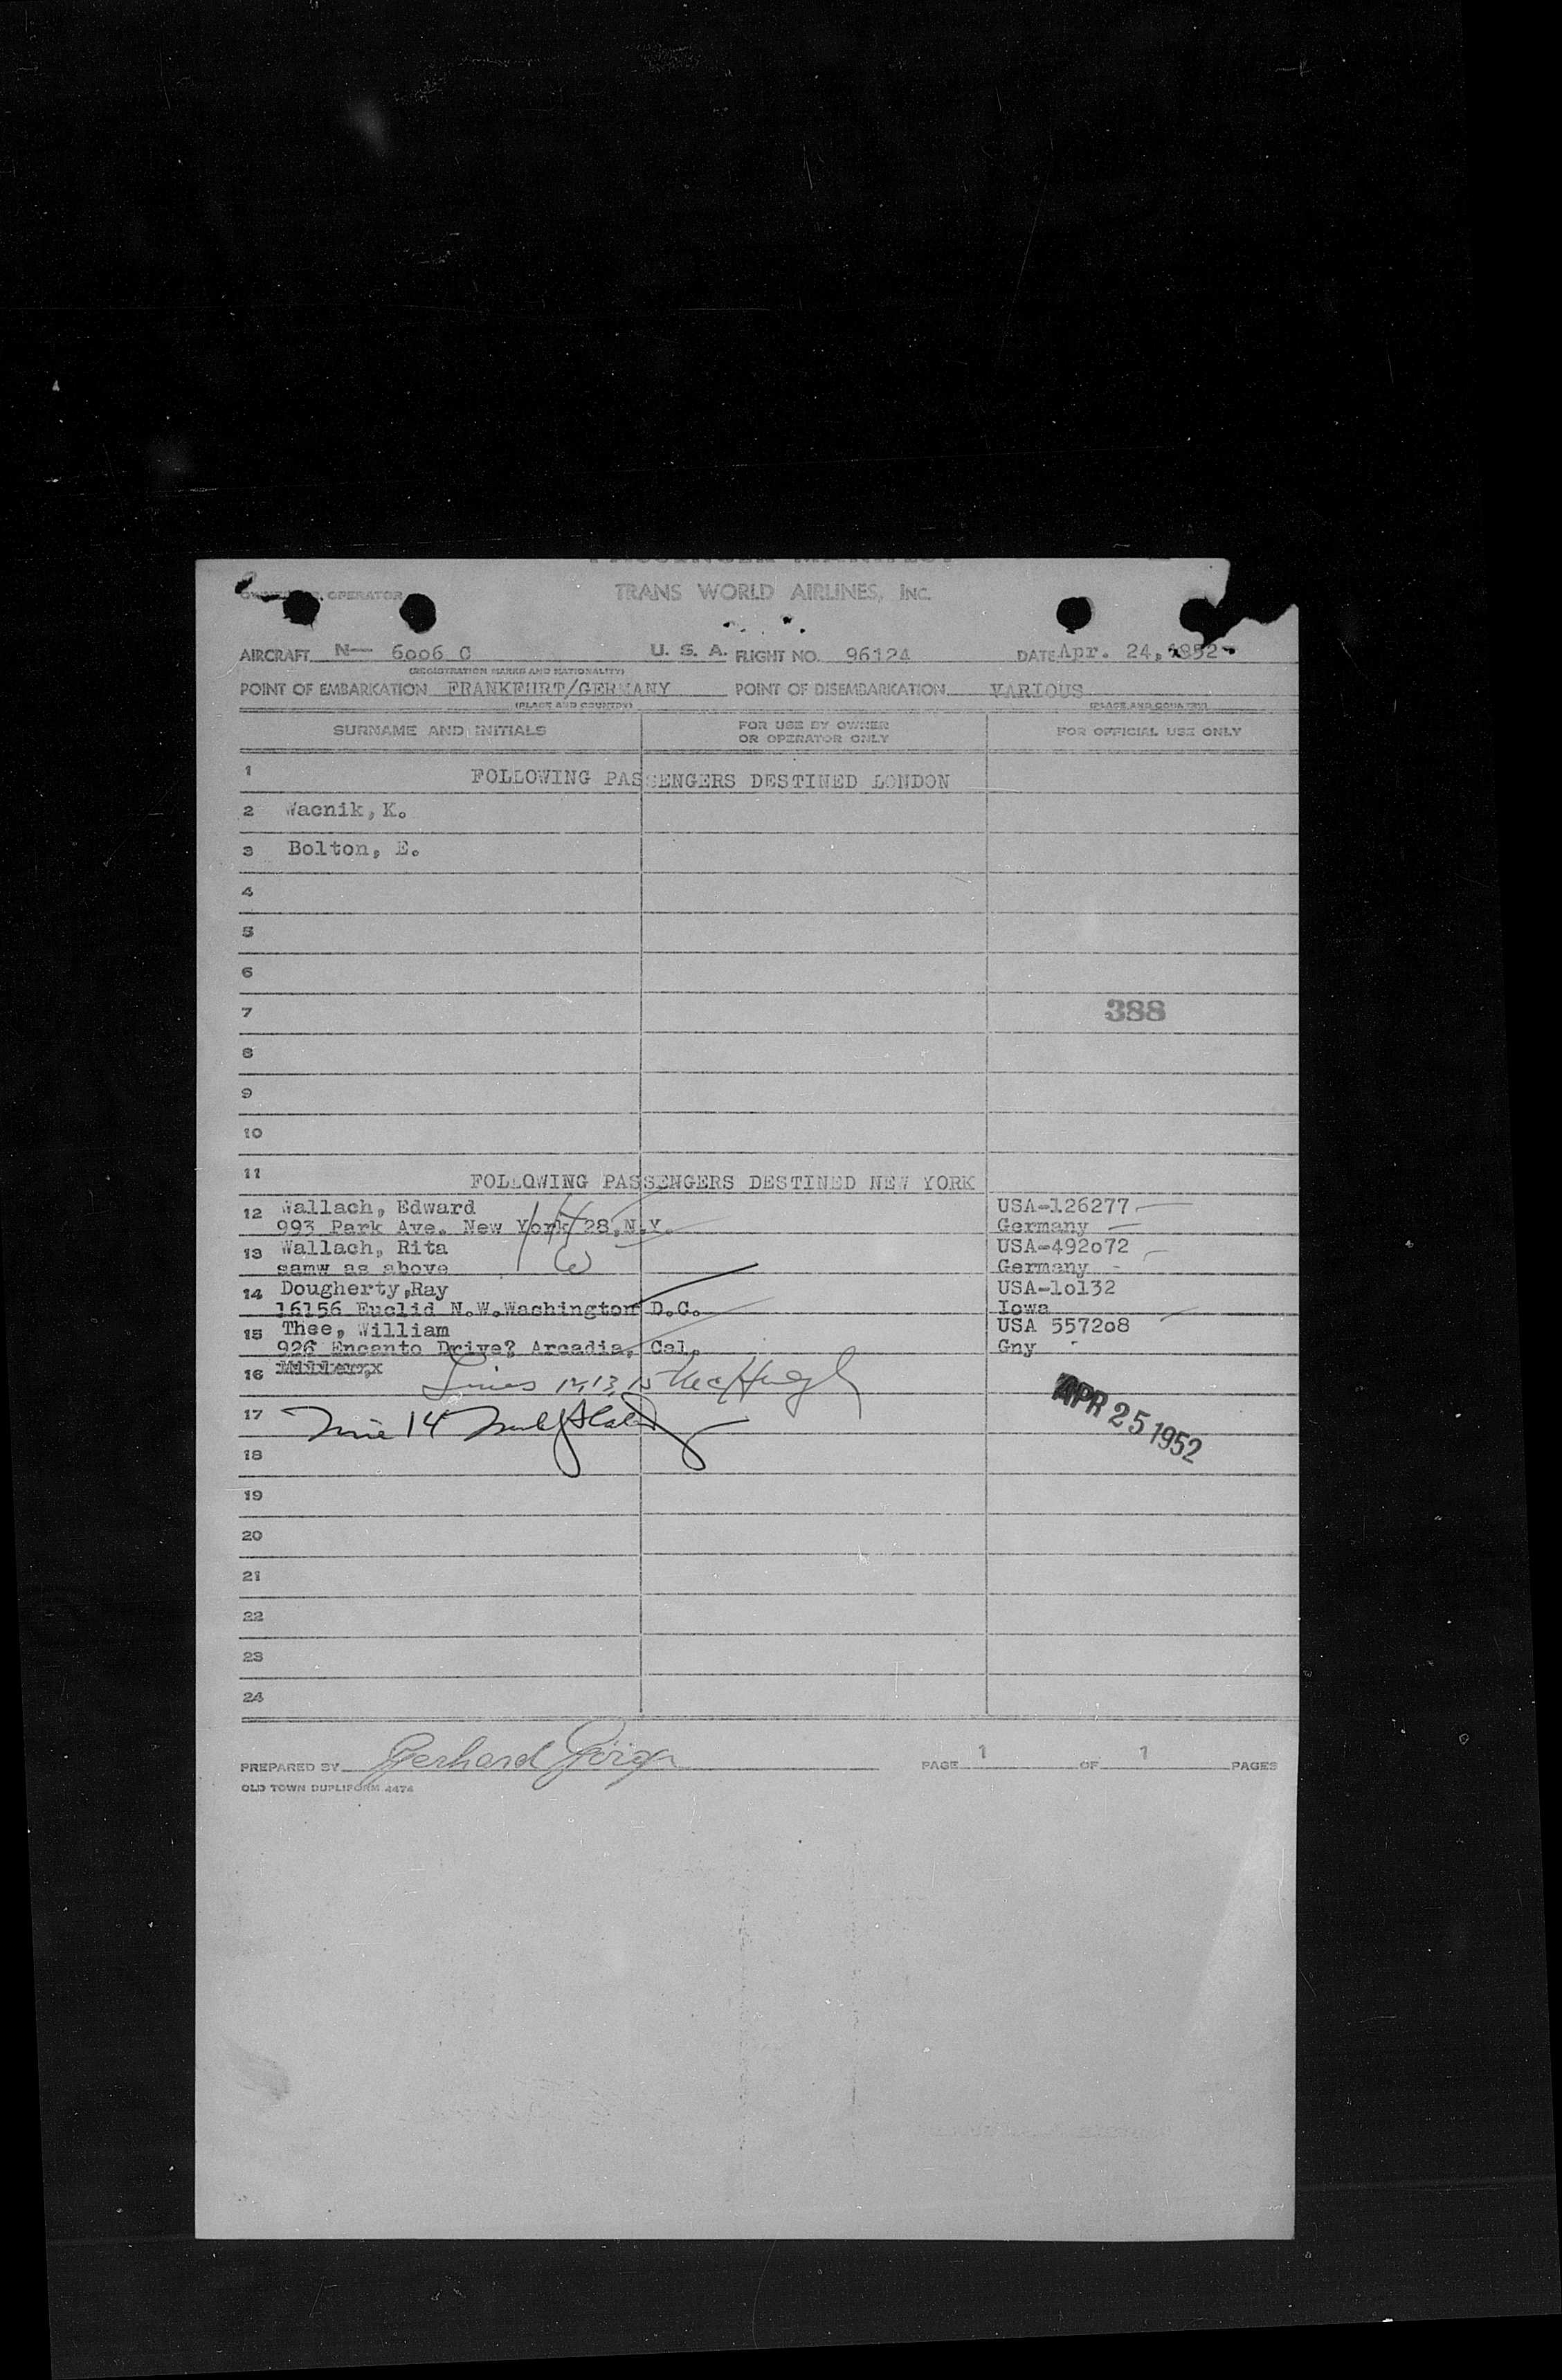 PASSENGER MANIFEST
OWNER OR OPERATOR TRANS WORLD AIRLINES, INC.
AIRCRAFT N— 6oo6 C U. S. A. FLIGHT NO. 96124 DATE Apr. 24, 1952
(REGISTRATION MARKS AND NATIONALITY)
POINT OF EMBARKATION FRANKFURT/GERMANY POINT OF DISEMBARKATION VARIOUS
(PLACE AND COUNTRY) (PLACE AND COUNTRY)
SURNAME AND INITIALS FOR USE BY OWNER OR OPERATOR ONLY FOR OFFICIAL USE ONLY
1 FOLLOWING PASSENGERS DESTINED LONDON
2 Wacnik, K.
3 Bolton, E.
4
5
6
7 388
8
9
10
11 FOLLOWING PASSENGERS DESTINED NEW YORK
12 Wallach, Edward USA-126277
993 Park Ave. New York 28, N.Y. Germany
13 Wallach, Rita USA-492o72
samw as above Germany
14 Dougherty,Ray USA-1o132
16156 Euclid N.W.Washington D.C. Iowa
15 Thee, William USA 5572o8
926 Encanto Drive? Arcadia, Cal. Gny
16
Lines 12, 13, 15
17 Line 14 APR 25 1952
18
19
20
21
22
23
24
PREPARED BY Gerhard PAGE 1 OF 1 PAGES
OLD TOWN DUPLIFORM 4474